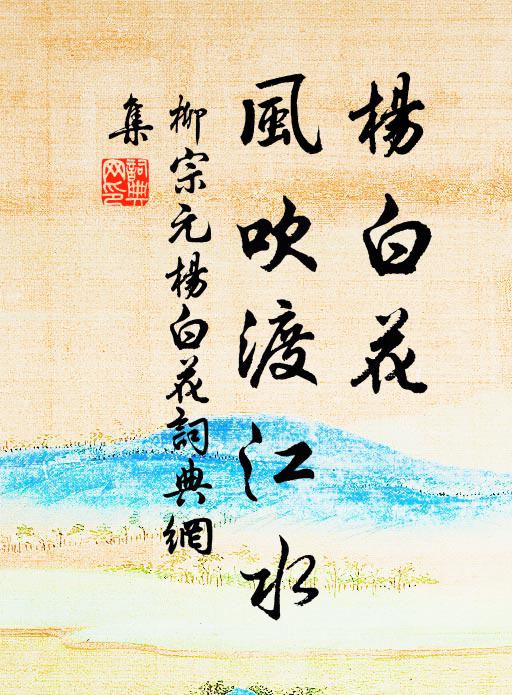 楊白花
風吹渡江水
柳宗元楊白花詞典網
集
詞典
网印